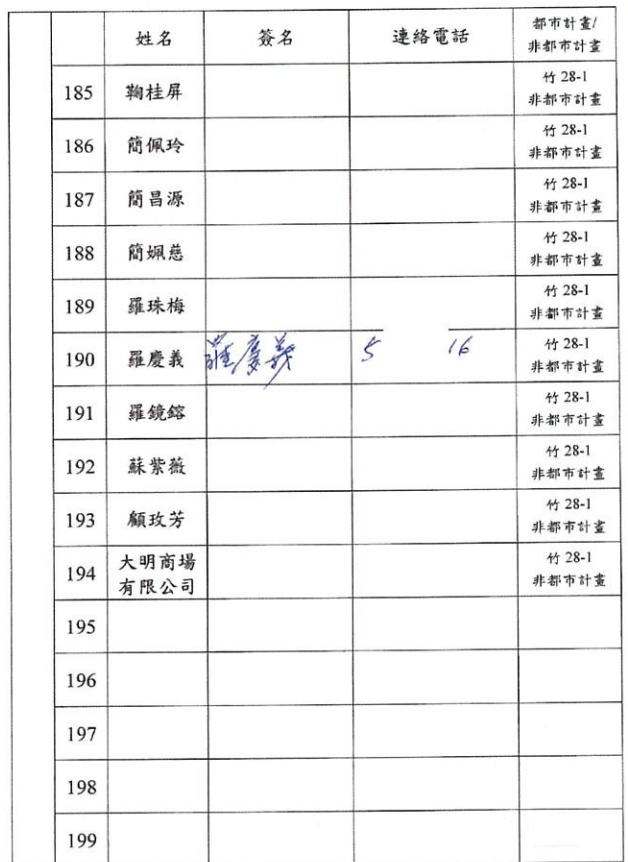 姓名 簽名 連絡電話 都市計畫/
非都市計畫
185 鞠桂屏 竹 28-1
非都市計畫
186 簡佩玲 竹 28-1
非都市計畫
187 簡昌源 竹 28-1
非都市計畫
188 簡姵慈 竹 28-1
非都市計畫
189 羅珠梅 竹 28-1
非都市計畫
190 羅慶義 羅慶義 5 16 竹 28-1
非都市計畫
191 羅鏡鎔 竹 28-1
非都市計畫
192 蘇紫薇 竹 28-1
非都市計畫
193 顧玫芳 竹 28-1
非都市計畫
194 大明商場 竹 28-1
有限公司 非都市計畫
195
196
197
198
199